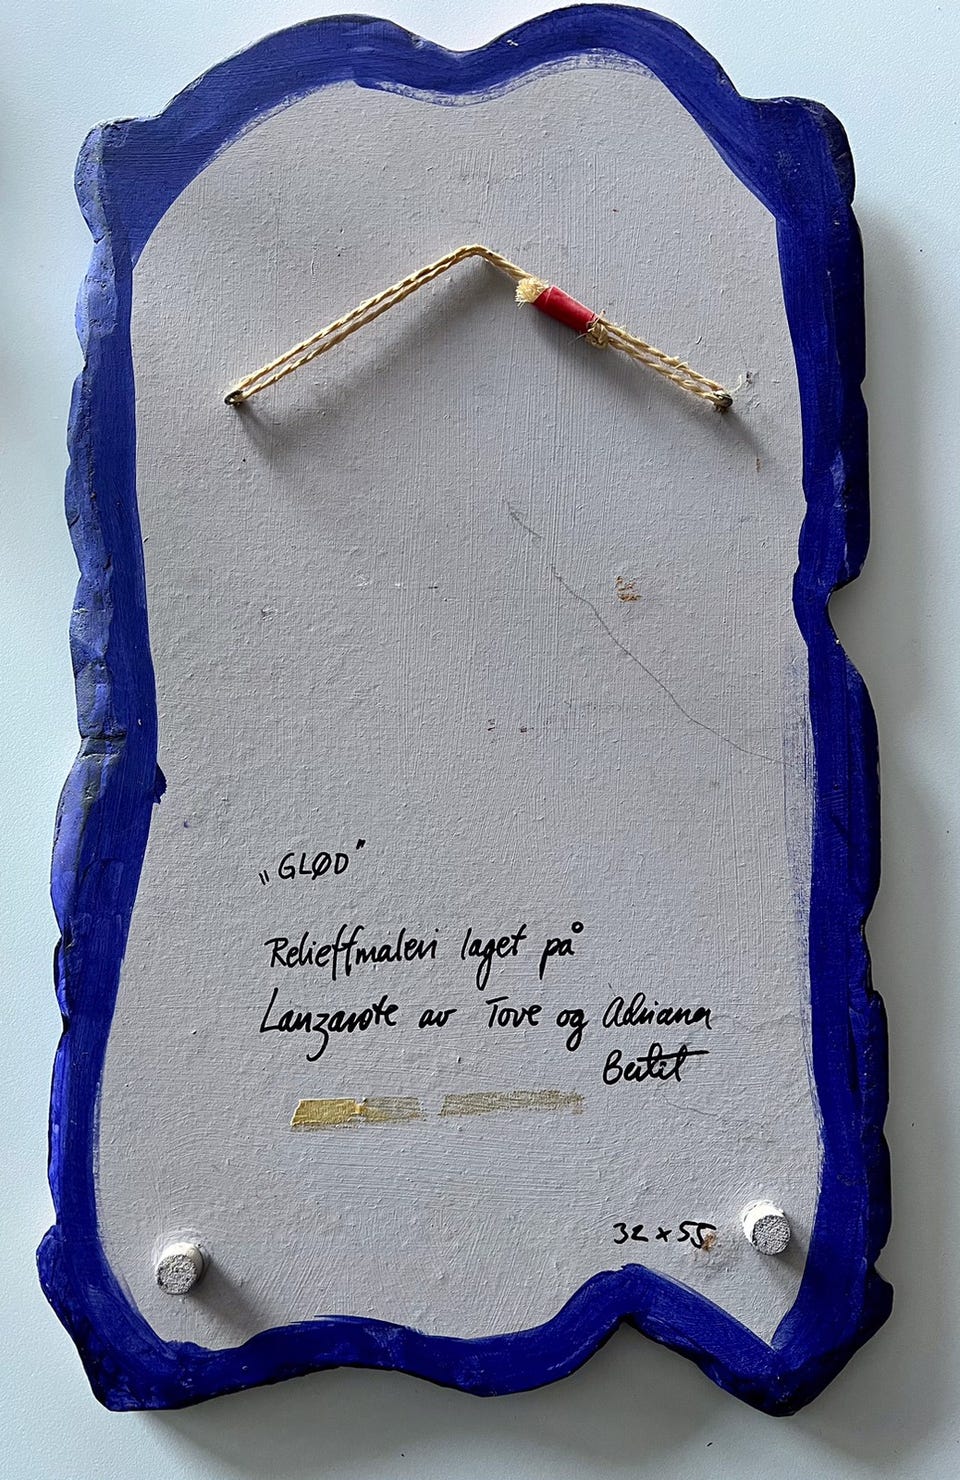 „GLØD"
Relieffmaleri laget på
Lanzarote av Tove og Adriana
32 x 55